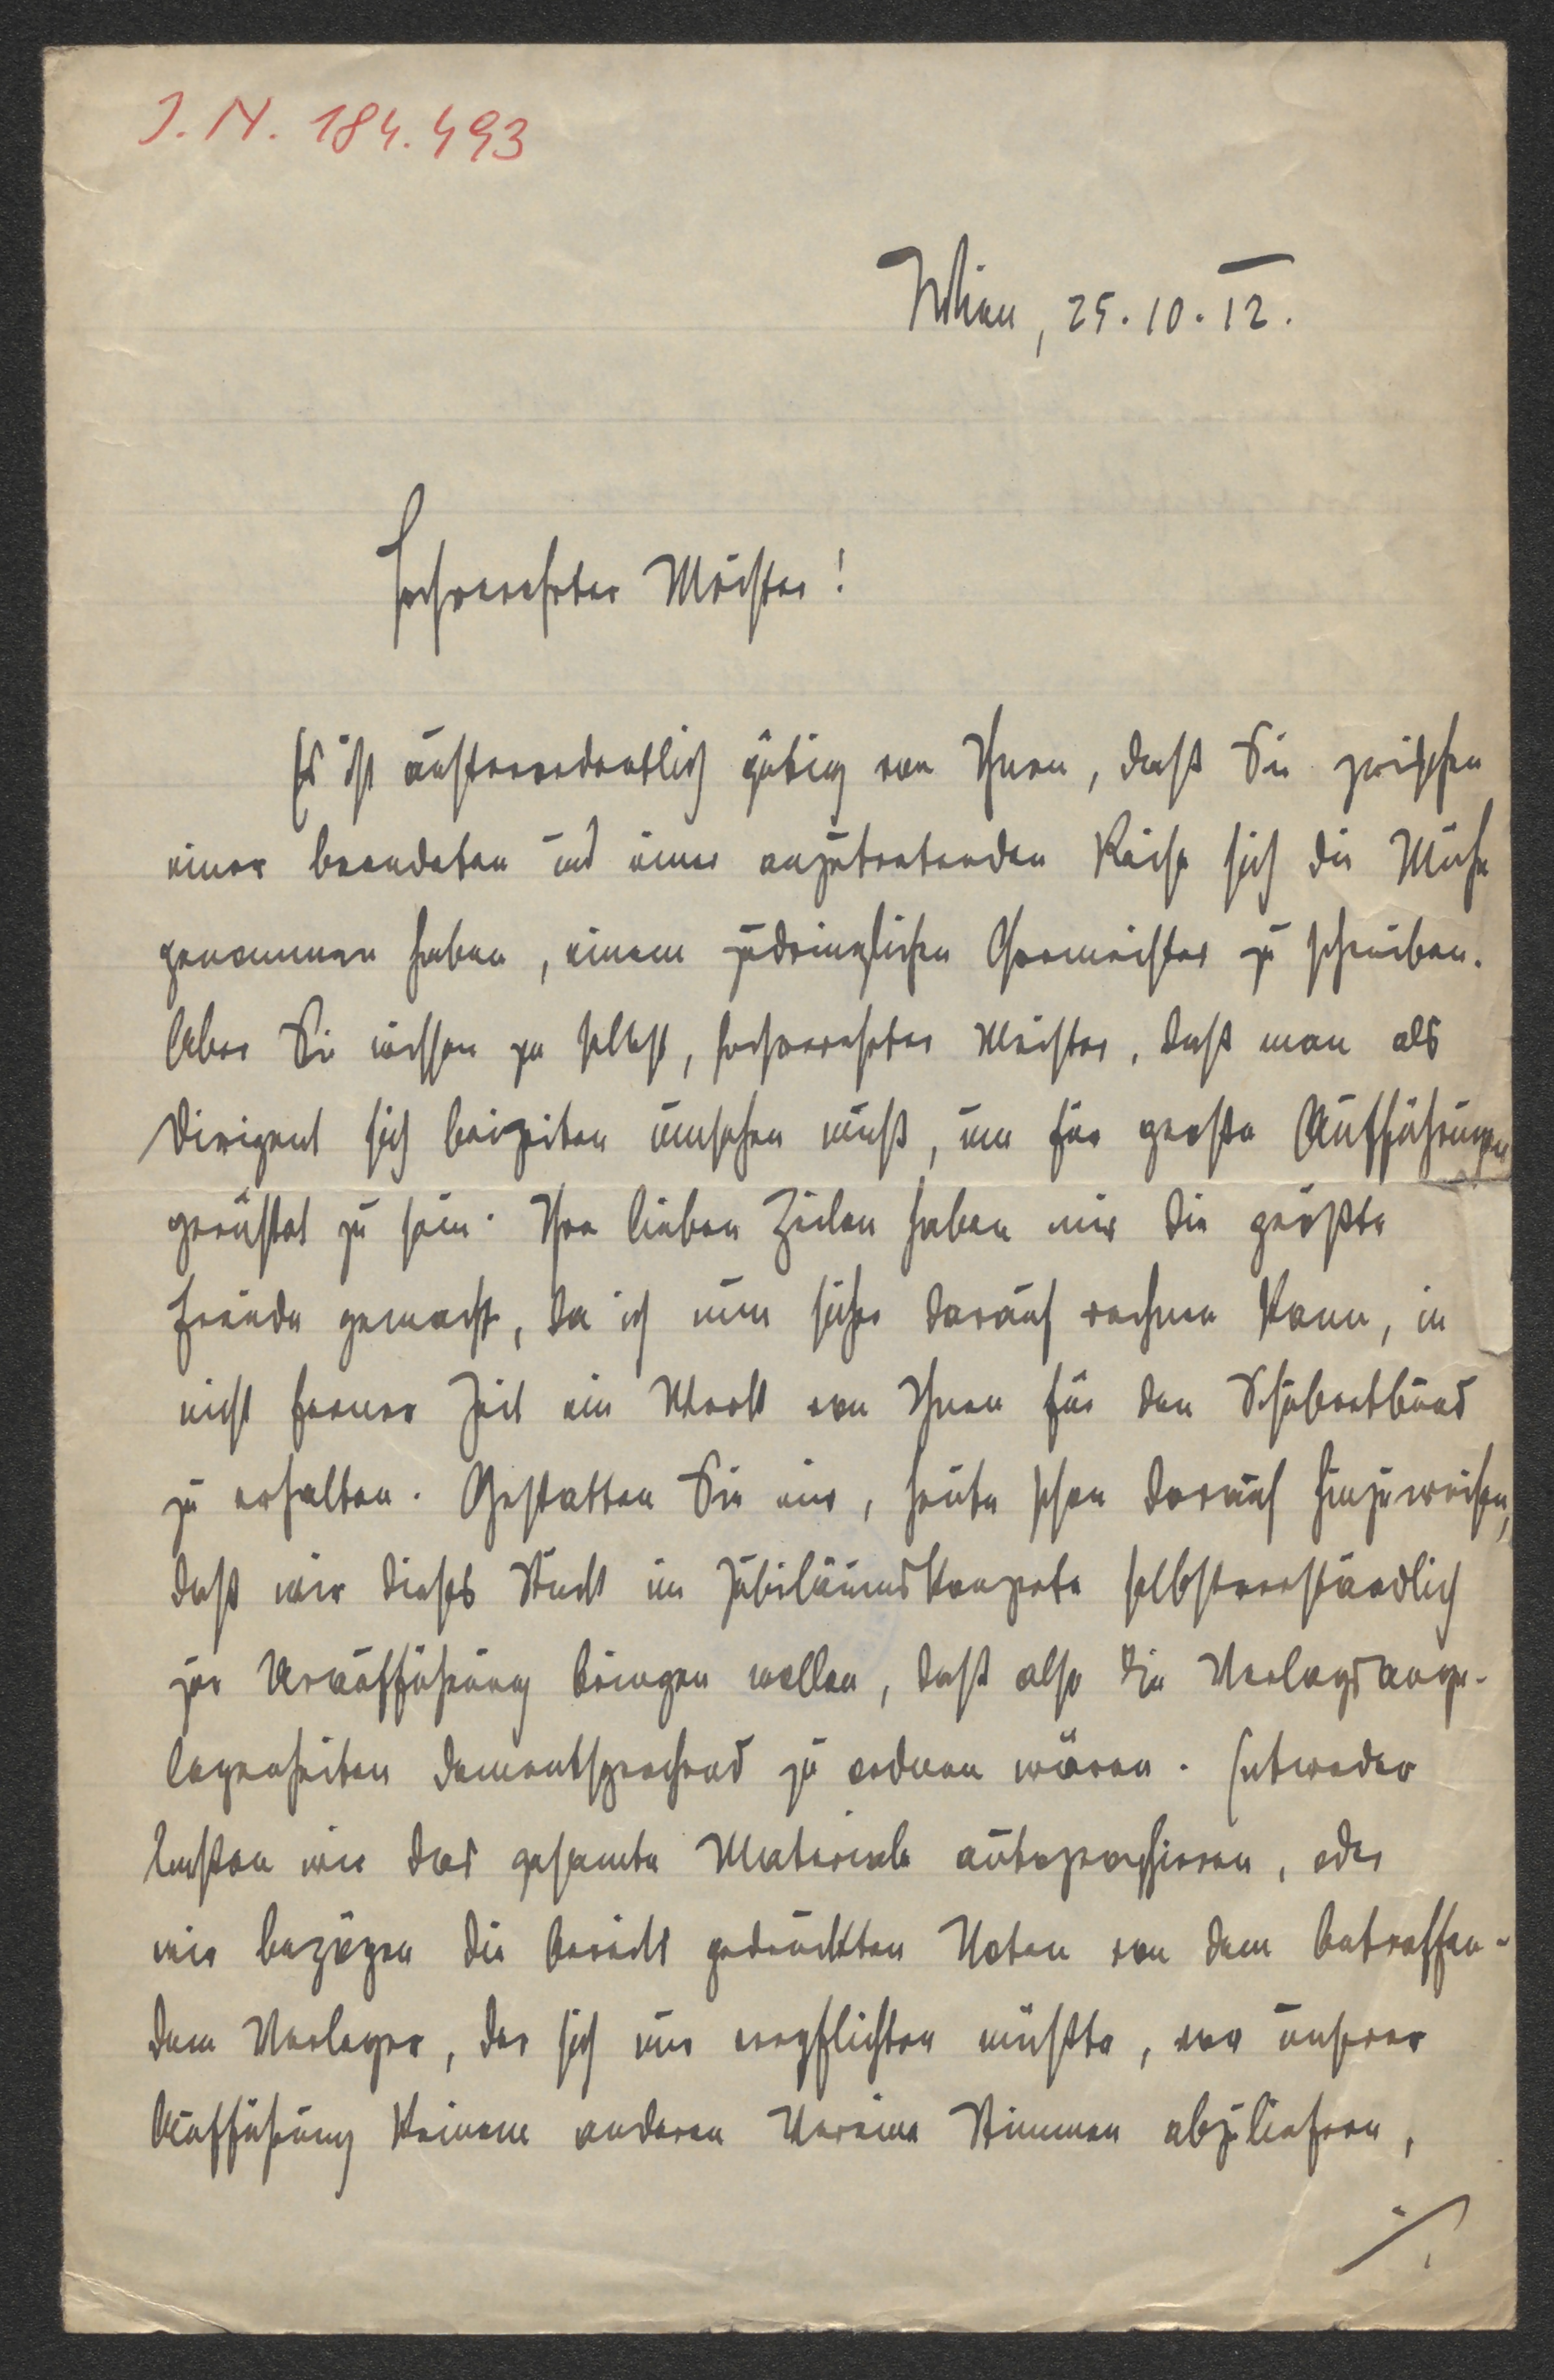 J. N. 184.493
Wien, 25. 10. 12.
Hochverehrter Meister!
Es ist außerordentlich gütig von Ihnen, daß Sie zwischen
einer beendeten und einer anzutretenden Reise sich die Mühe
genommen haben, einem zudringlichen Chormeister zu schreiben.
Aber Sie wissen ja selbst, hochverehrter Meister, daß man als
Dirigent sich beizeiten umsehen muß, um für große Aufführungen
gerüstet zu sein. Ihre lieben Zeilen haben mir die größte
Freude gemacht, da ich nun sicher darauf rechnen kann, in
nicht ferner Zeit ein Werk von Ihnen für den Schubertbund
zu erhalten. Gestatten Sie mir, heute schon darauf hinzuweisen,
daß wir dieses Stück im Jubiläumskonzerte selbstverständlich
zur Uraufführung bringen wollen, daß also die Verlagsange-
legenheiten dementsprechend zu ordnen wären. Entweder
lassen wir das gesamte Materiale autographieren, oder
wir bezögen die bereits gedruckten Noten von dem betreffen-
dem Verleger, der sich nur verpflichten müßte, vor unserer
Aufführung keinem anderen Vereine Stimmen abzuliefern,
./.